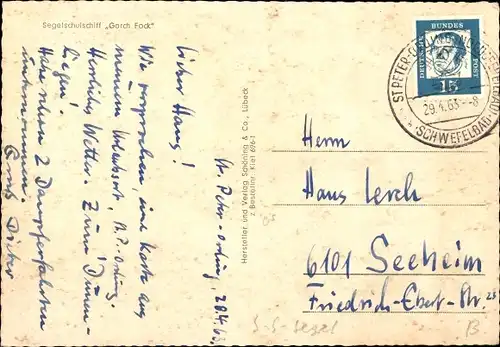 Segelschulschiff „Gorch Fock"
St. Peter-Ording, 28.4.63.
Lieber Hans!
Wie versprochen, eine Karte aus
meinem Urlaubsort, St. P.-Ording.
Herrliches Wetter. Zum Dünen-
liegen!
Habe schon 2 Dampferfahrten
unternommen.
Gruß Dieter
Hersteller und Verlag Schöning & Co., Lübeck
z. Bestellnr. Kiel 696-1
DEUTSCHE BUNDESPOST
15
ST. PETER-ORDING NORDSEEHEIL-
29.4.63.-8
SCHWEFELBAD
Herrn
Hans Lerch
6101 Seeheim
Friedrich-Ebert-Str 25
S-S-Segel